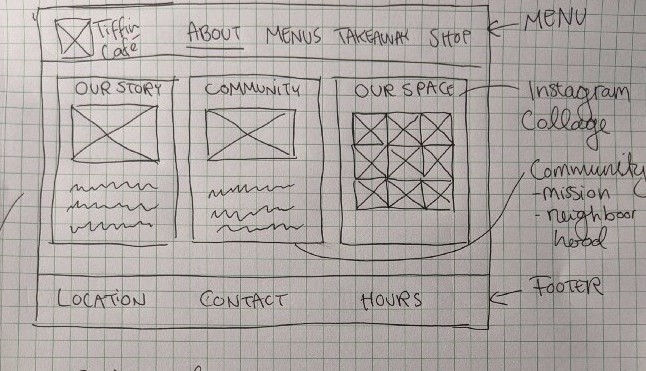 Tiffin
Cafe
ABOUT MENUS TAKEAWAY SHOP
MENU
OUR STORY
COMMUNITY
OUR SPACE
Instagram
Collage
Community
-mission
-neighboor
hood
LOCATION CONTACT HOURS
FOOTER